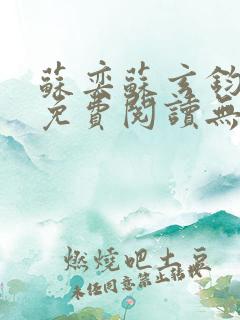 蘇奕蘇玄鈞
免費閱讀無
燃燒吧土豆
未經同意禁止轉載